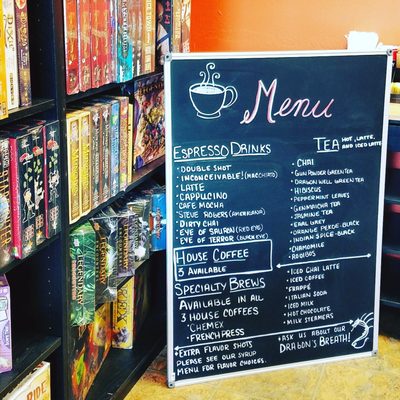 Menu
Espresso Drinks
• Double Shot
• Inconceivable! (macchiato)
• Latte
• Cappucino
• Cafe Mocha
• Steve Rogers (Americana)
• Dirty Chai
• Eye of Sauron (Red Eye)
• Eye of Terror (Black Eye)
House Coffee
3 Available
Specialty Brews
Available in all
3 House Coffees
• Chemex
• French Press
• Extra Flavor Shots
Please see our syrup
menu for flavor choices.
Tea Hot, Latte,
and Iced
• Chai
• Gun Powder Green Tea
• Dragon Well Green Tea
• Hibiscus
• Peppermint Leaves
• Genmaicha
• Jasmine Tea
• Earl Grey
• Orange Pekoe-Black
• Indian Spice-Black
• Chamomile
• Rooibos
• Iced Chai Latte
• Iced Coffee
• Frappé
• Italian Soda
• Iced Milk
• Hot Chocolate
• Milk Steamers
• Ask us about our
Dragon's Breath!
Legendary